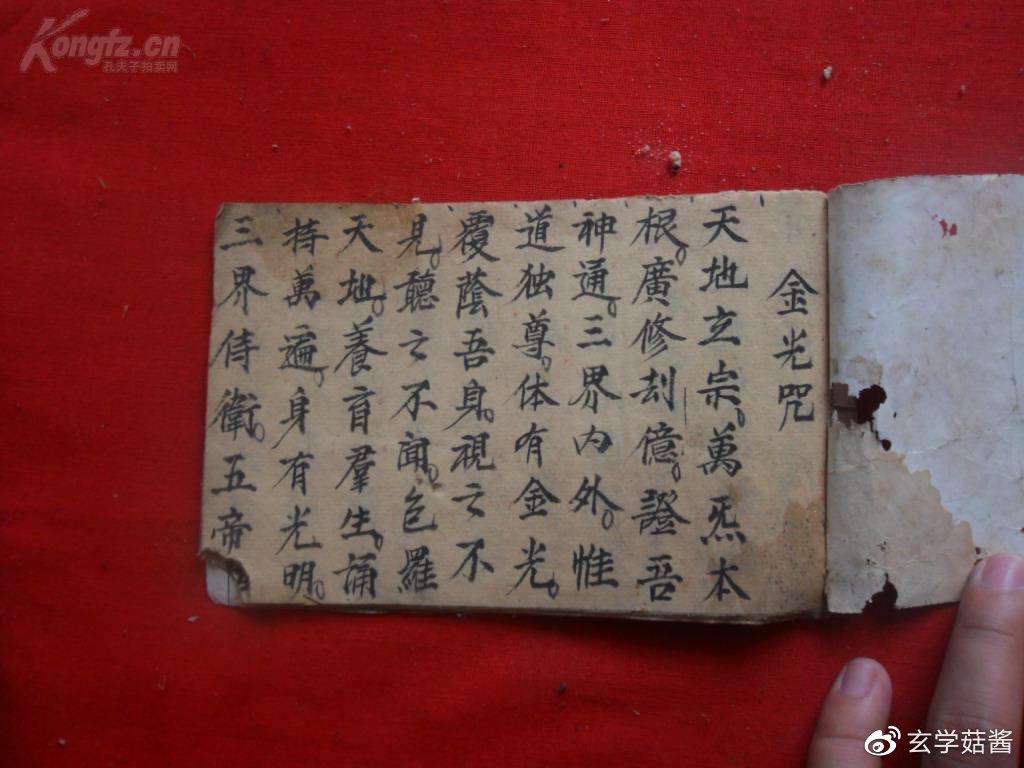 金光咒
天地立宗。萬炁本
根。廣修刦億。證吾
神通。三界内外。惟
道独尊。体有金光。
覆蔭吾身。視之不
見。聽之不聞。包羅
天地。養育羣生。誦
持萬遍。身有光明。
三界侍衛。五帝
Kongfz.cn
孔夫子拍卖网
玄学菇酱